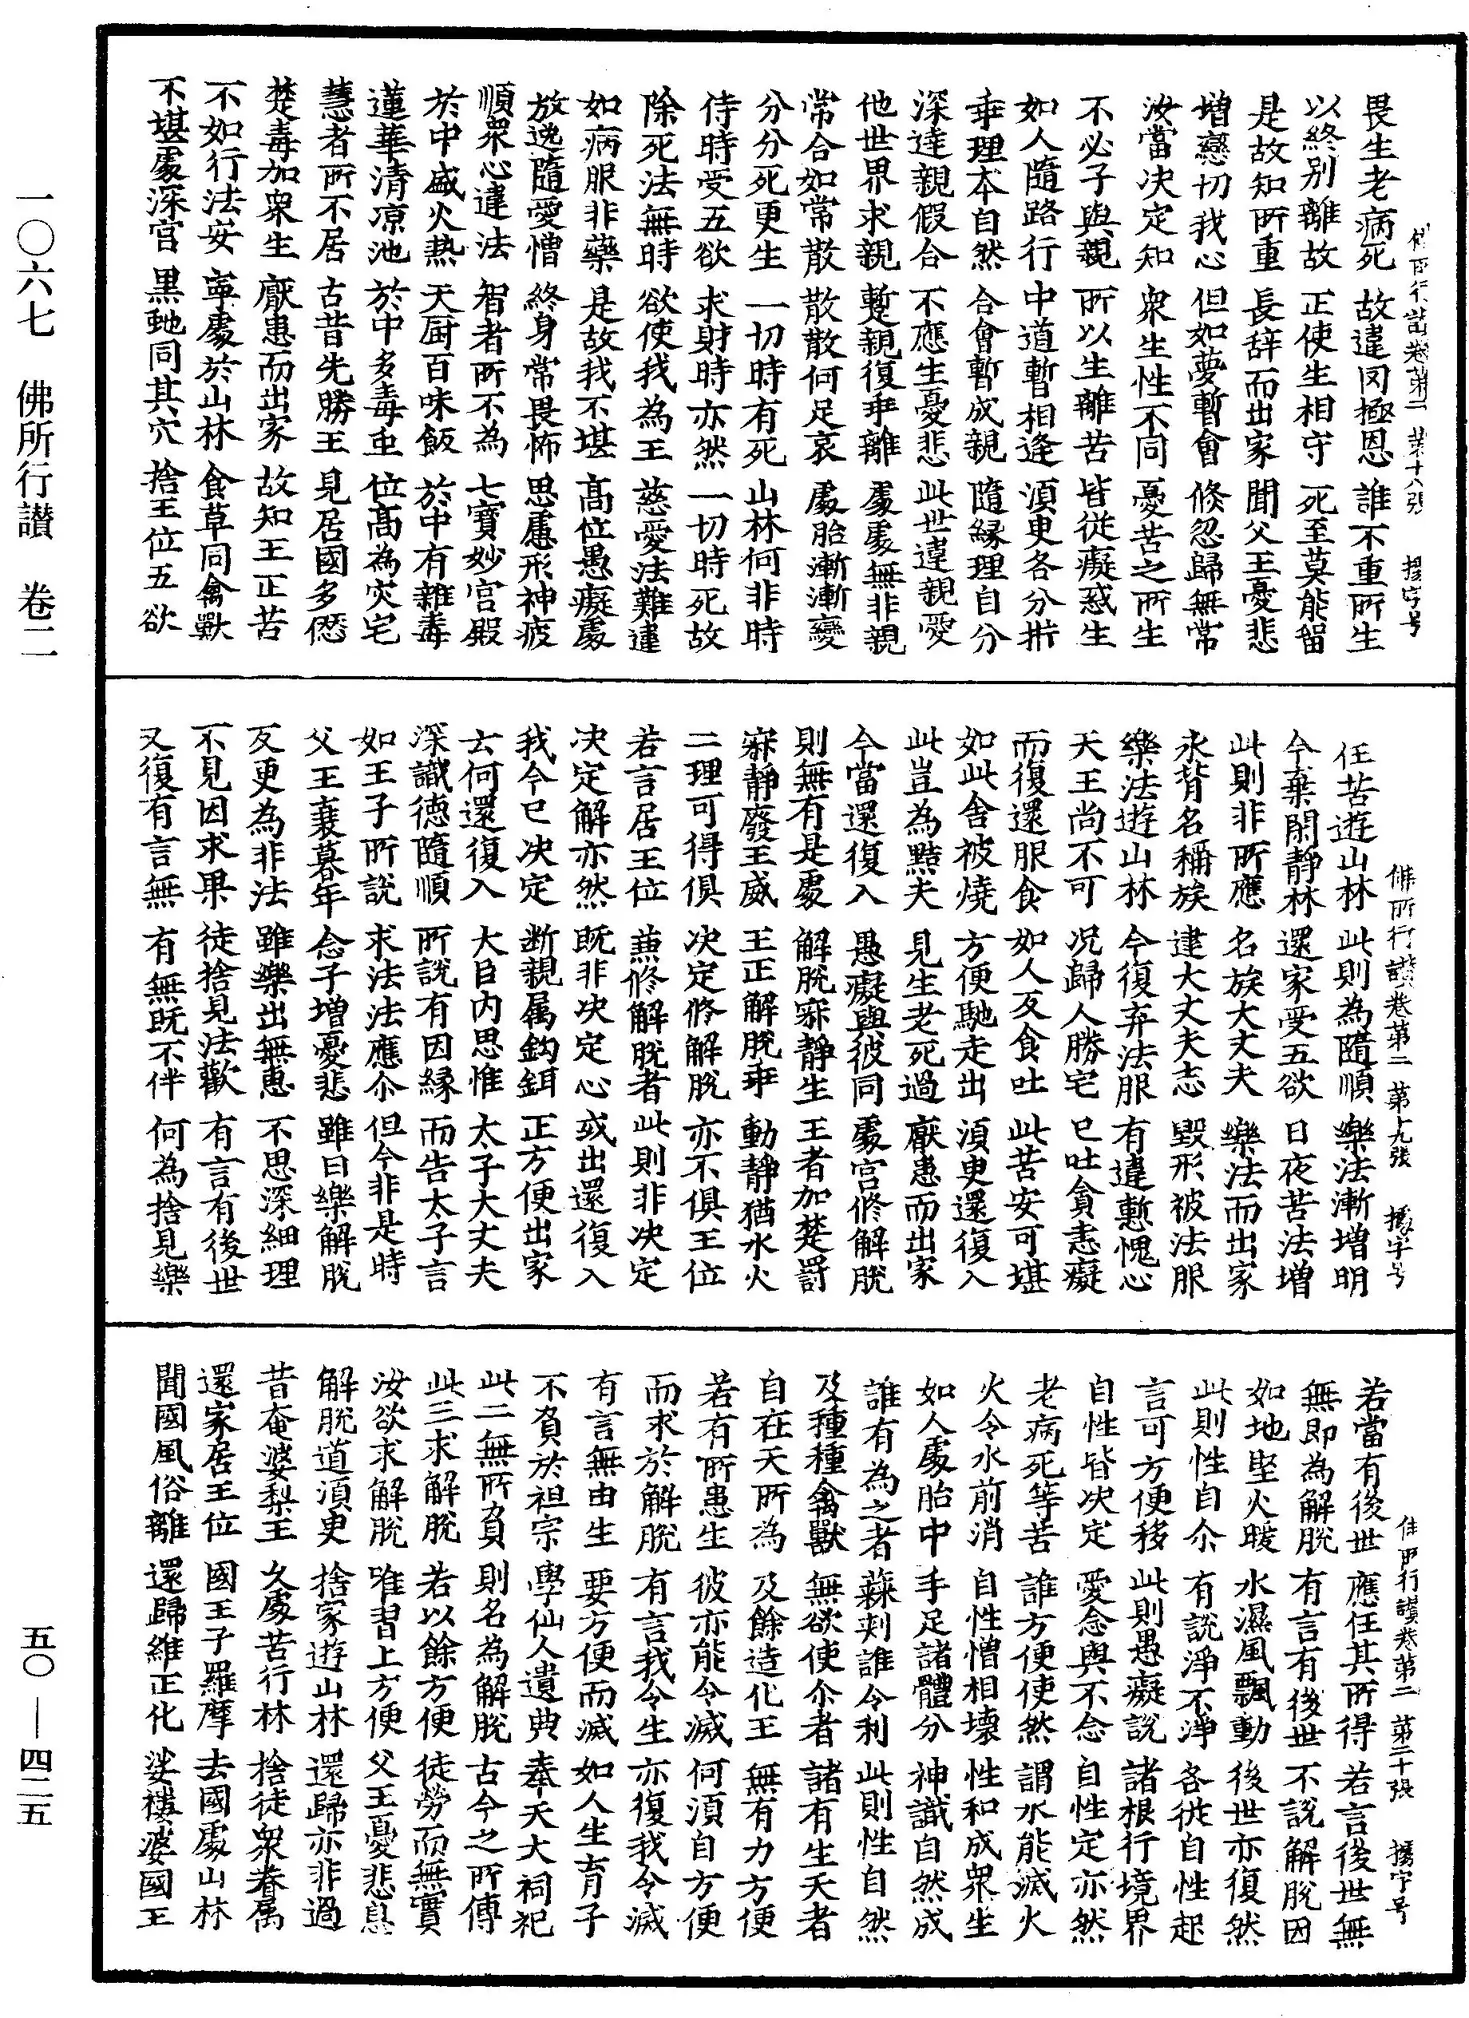 畏生老病死　故違罔極恩　誰不重所生
以終別離故　正使生相守　死至莫能留
是故知所重　長辝而出家　聞父王憂悲
增戀切我心　但如夢暫會　倏忽歸無常
汝當決定知　衆生性不同　憂苦之所生
不必子與親　所以生離苦　皆從癡惑生
如人隨路行　中道暫相逢　須臾各分拆
乖理本自然　合會暫成親　隨緣理自分
深達親假合　不應生憂悲　此世違親愛
他世更求親　暫親復乖離　處處無非親
常合如常散　散散何足哀　處胎漸漸變
分分死更生　一切時有死　山林何非時
侍時受五欲　求財時亦然　一切時死故
除死法無時　欲使我為王　慈愛法難違
如病服非藥　是故我不堪　高位愚癡處
放逸隨愛憎　終身常畏怖　思慮形神疲
順衆心違法　智者所不為　七寶妙宮殿
於中盛火熱　天厨百味飯　於中有雜毒
蓮華清涼池　於中多毒虫　位高為灾宅
慧者所不居　古昔先勝王　見居國多愆
楚毒加衆生　厭患而出家　故知王正苦
不如行法安　寧處於山林　食草同禽獸
不堪處深宮　黑虵同其穴　捨王位五欲
任苦遊山林　此則為隨順　樂法漸增明
今棄閑靜林　還家受五欲　日夜苦法增
此則非所應　名族大丈夫　樂法而出家
永背名稱族　建大丈夫志　毀形被法服
樂法遊山林　今復弃法服　有違慙愧心
天王尚不可　況歸人勝宅　已吐貪恚癡
而復還服食　如人反食吐　此苦安可堪
如此舍被燒　方便馳走出　須臾還復入
此豈為黠夫　見生老死過　厭患而出家
今當還復入　愚癡與彼同　處宮修解脫
則無有是處　解脫寂靜生　王者加楚罸
寂靜廢王威　王正解脫乖　動靜猶水火
二理可得俱　決定修解脫　亦不俱王位
若言居王位　兼修解脫者　此則非決定
決定解亦然　既非決定心　或出還復入
我今已決定　斷親屬鉤餌　正方便出家
云何還復入　大臣內思惟　太子大丈夫
深識德隨順　所說有因緣　而告太子言
如王子所說　求法法應尒　但今非是時
父王衰暮年　念子增憂悲　雖曰樂解脫
反更為非法　雖樂出無惠　不思深細理
不見因求果　徒捨見法歡　有言有後世
又復有言無　有無既不伴　何為捨見樂
若當有後世　應任其所得　若言後世無
無即為解脫　有言有後世　不說解脫因
如地堅火暖　水濕風飄動　後世亦復然
此則性自尒　有說淨不淨　各從自性起
言可方便移　此則愚癡說　諸根行境界
自性皆決定　愛念與不念　自性定亦然
老病死等苦　誰方便使然　謂水能滅火
火令水煎消　自性憎相壞　性和成衆生
如人處胎中　手足諸體分　神識自然成
誰有為之者　蕀刺誰令利　此則性自然
及種種禽獸　無欲使尒者　諸有生天者
自在天所為　及餘造化王　無有力方便
若有所患生　彼亦能令滅　何須自方便
而求於解脫　有言我令生　亦復我令滅
有言無由生　要方便而滅　如人生育子
不負於祖宗　學仙人遺典　奉天大祠祀
此二無所負　則名為解脫　古今之所傳
此三求解脫　若以餘方便　徒勞而無實
汝欲求解脫　唯習上方便　父王憂悲息
解脫道須臾　捨家遊山林　還歸亦非過
昔奄婆梨王　久處苦行林　捨徒衆眷屬
還家居王位　國王子羅摩　去國處山林
聞國風俗離　還歸維正化　娑樓婆國王
佛所行讃卷第二　第十八張
佛所行讃卷第二　第十九張
佛所行讃卷第二　第二十張
一〇六七　佛所行讃　卷二
五〇—四二五